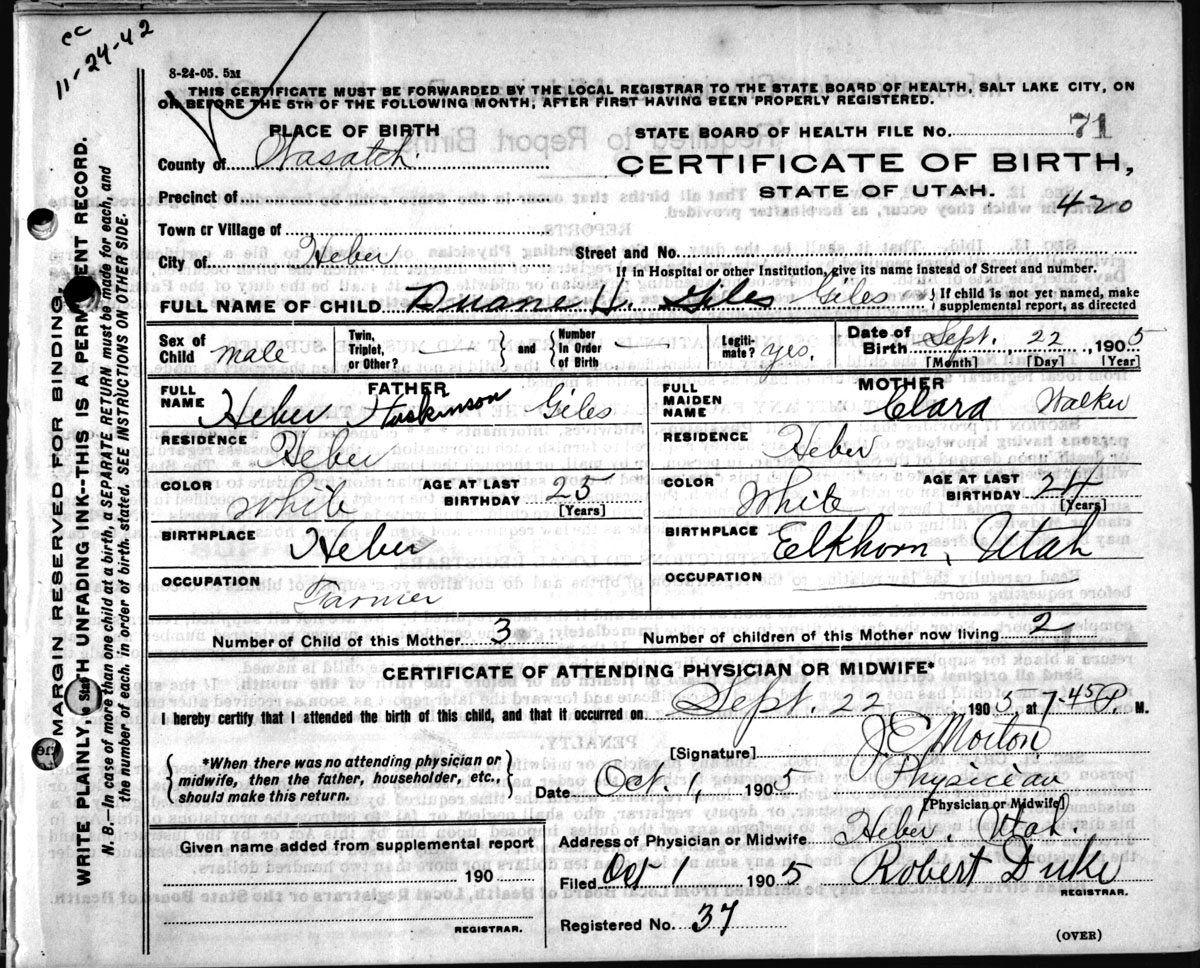 cc
11-24-42
8-24-05. 5M
THIS CERTIFICATE MUST BE FORWARDED BY THE LOCAL REGISTRAR TO THE STATE BOARD OF HEALTH, SALT LAKE CITY, ON
OR BEFORE THE 5TH OF THE FOLLOWING MONTH, AFTER FIRST HAVING BEEN PROPERLY REGISTERED.
PLACE OF BIRTH
STATE BOARD OF HEALTH FILE NO. 71
County of Wasatch
CERTIFICATE OF BIRTH,
STATE OF UTAH.
Precinct of
420
Town or Village of
City of Heber
Street and No.
If in Hospital or other Institution, give its name instead of Street and number.
FULL NAME OF CHILD Duane Giles Giles
If child is not yet named, make
supplemental report, as directed
Sex of Child male
Twin, Triplet, or Other? —
and
Number In Order of Birth —
Legitimate? yes.
Date of Birth Sept. 22, 1905
[Month] [Day] [Year]
FATHER
FULL NAME Heber Huskinson Giles
MOTHER
FULL MAIDEN NAME Clara Walker
RESIDENCE Heber
RESIDENCE Heber
COLOR White
AGE AT LAST BIRTHDAY 25
[Years]
COLOR White
AGE AT LAST BIRTHDAY 24
[Years]
BIRTHPLACE Heber
BIRTHPLACE Elkhorn, Utah
OCCUPATION Farmer
OCCUPATION
Number of Child of this Mother 3
Number of children of this Mother now living 2
CERTIFICATE OF ATTENDING PHYSICIAN OR MIDWIFE*
I hereby certify that I attended the birth of this child, and that it occurred on Sept. 22, 1905 at 7 45 P. M.
*When there was no attending physician or
midwife, then the father, householder, etc.,
should make this return.
[Signature] J E Morton
Date Oct. 1, 1905
Physician
[Physician or Midwife]
Given name added from supplemental report
190
REGISTRAR.
Address of Physician or Midwife Heber, Utah.
Filed Oct 1 1905
Robert Duke
REGISTRAR.
Registered No. 37
(OVER)
MARGIN RESERVED FOR BINDING
WRITE PLAINLY, WITH UNFADING INK--THIS IS A PERMANENT RECORD.
N. B.—In case of more than one child at a birth, a SEPARATE RETURN must be made for each, and
the number of each, in order of birth stated. SEE INSTRUCTIONS ON OTHER SIDE.